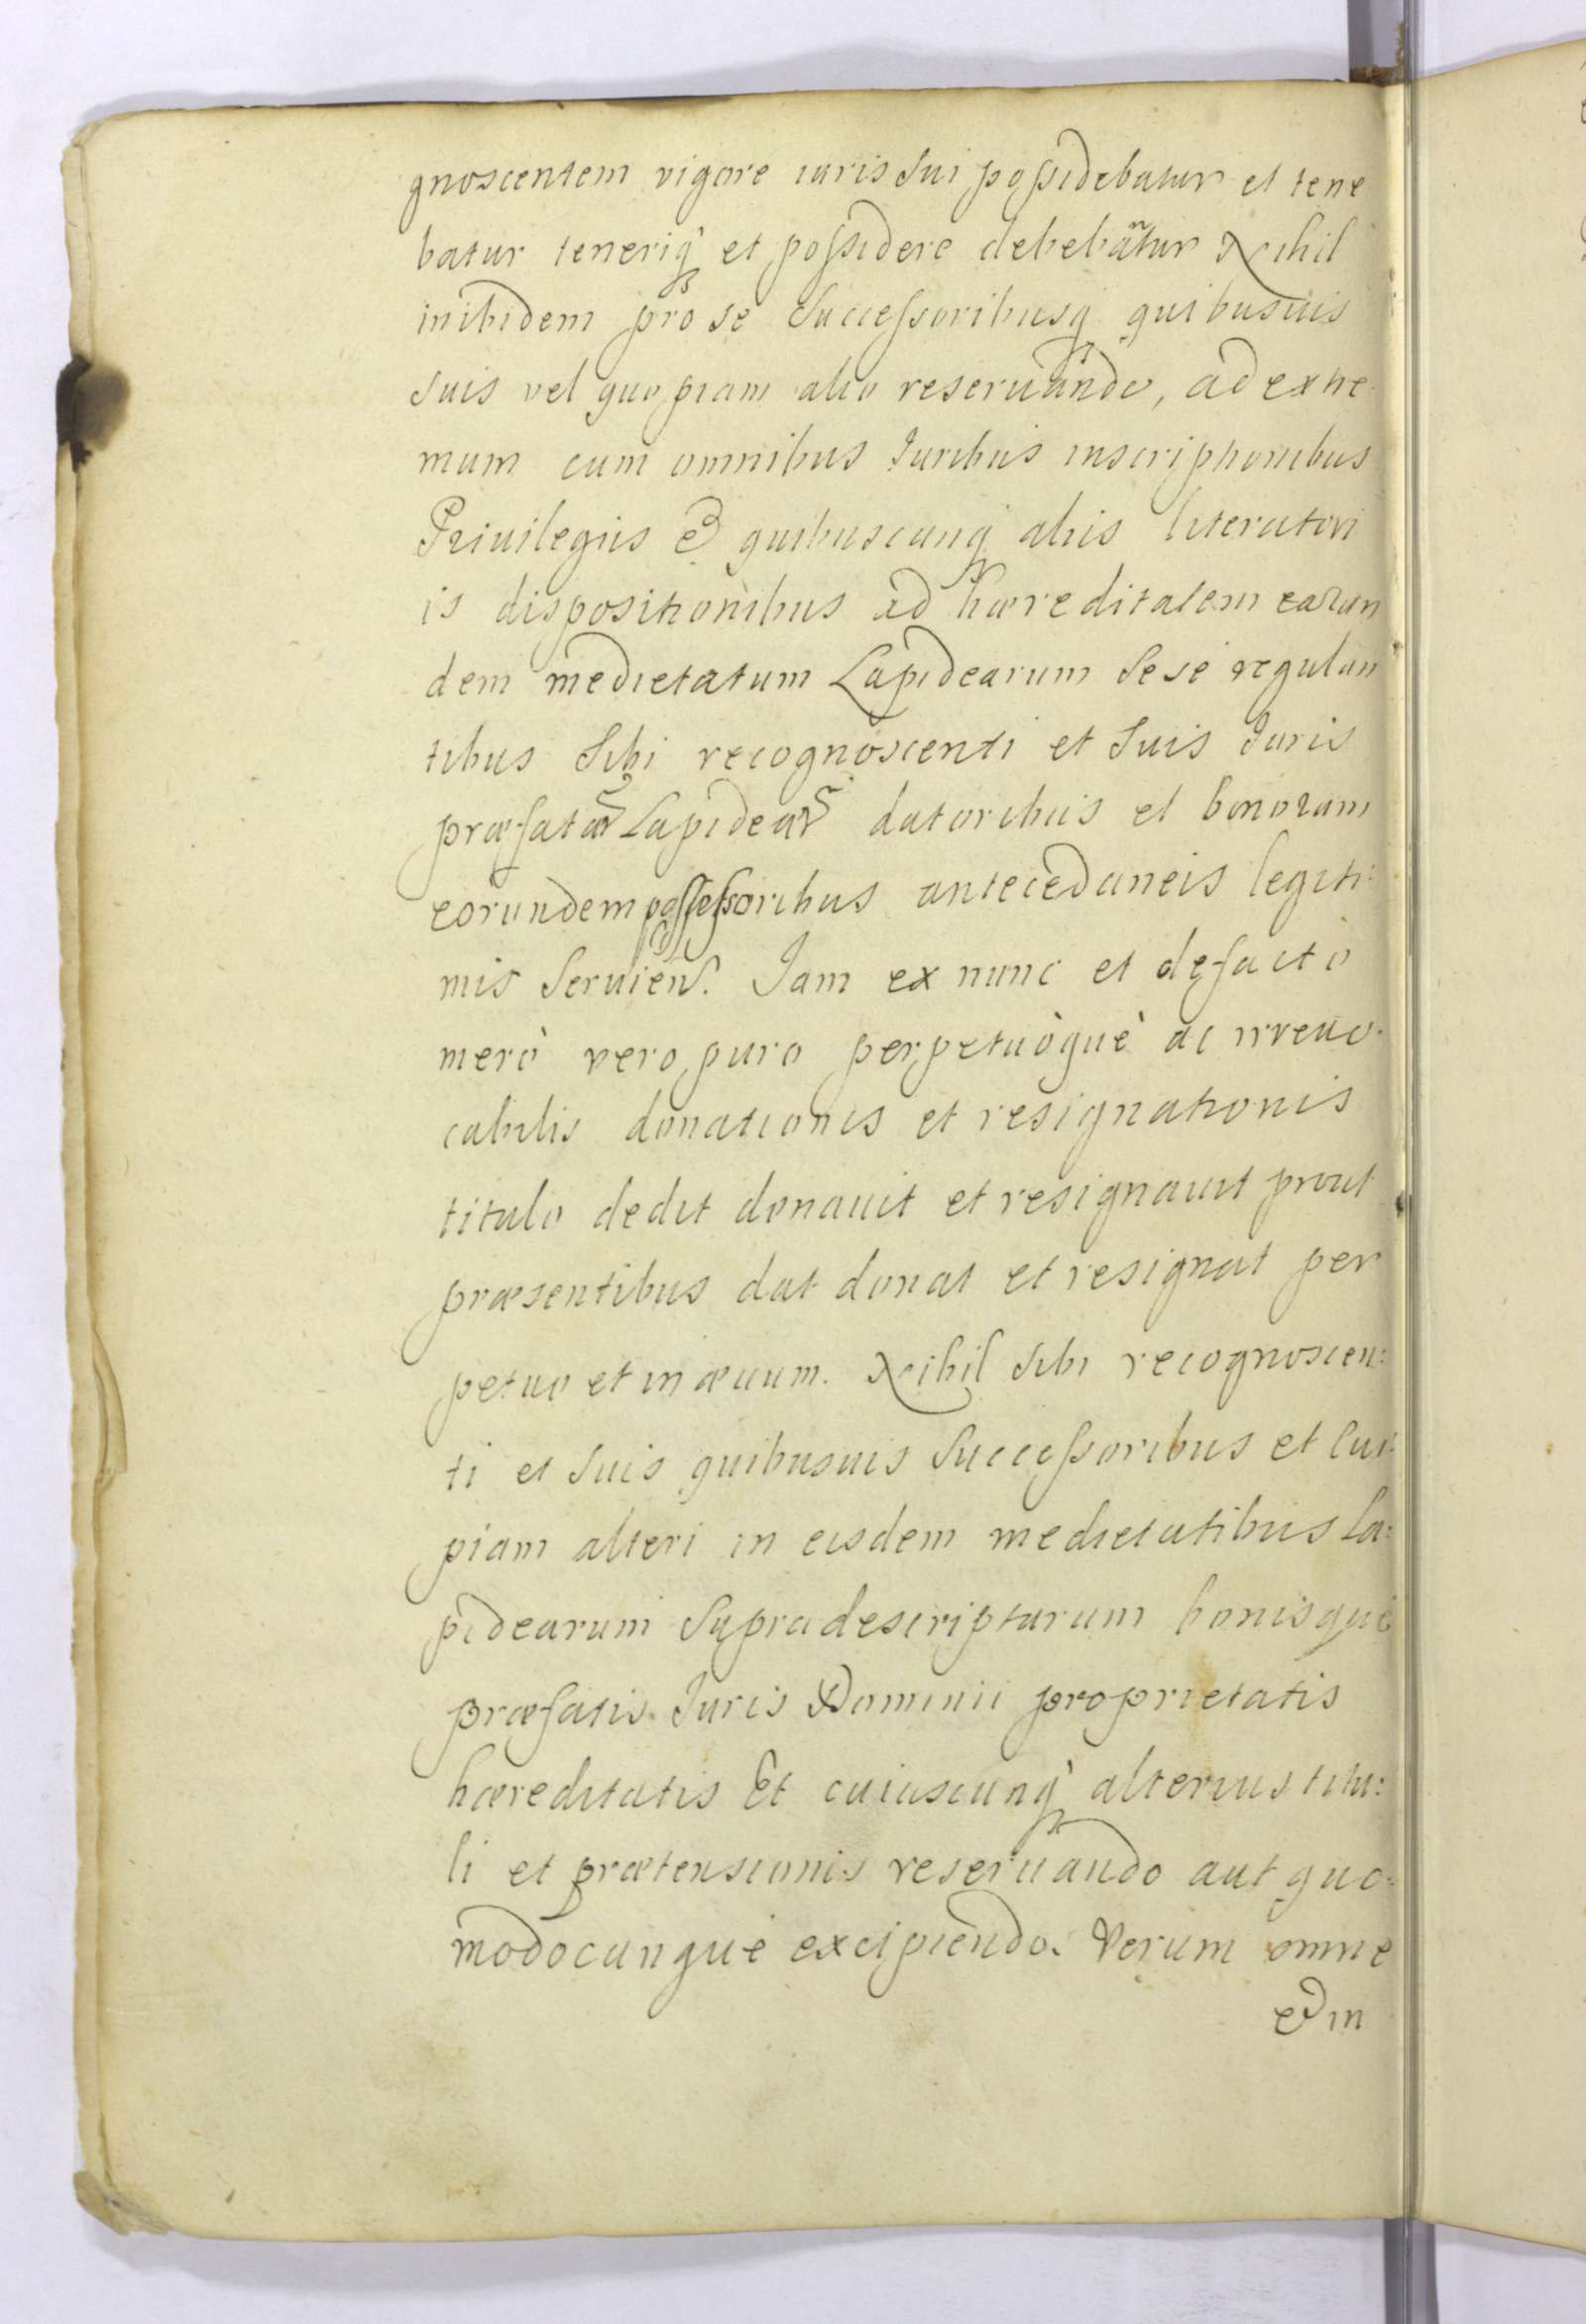 gnoscentem vigore iuris Sui possidebatur et tene
batur teneriq́ et possidere debebãtur Nihil
inibidem pro se Successoribusq́ quibusuis
Suis vel quopiam alio reseruando, ad extre
mum cum omnibus Iuribus inscriptionibus
Priuilegiis & quibuscunq́ aliis literatori
is dispositionibus ad hæreditatem earun
dem medietatum Lapidearum Sese regulan
tibus Sibi recognoscenti et Suis Iuris
præfatar̃ Lapidear̃ datoribus et bonorum
eorundem possessoribus antecedaneis legiti:
mis Seruieñ. Iam ex nunc et defacto
merò vero puro perpetuòquè ac irreuo:
cabilis donationis et resignationis
titulo dedit donauit et resignauit prout
præsentibus dat donat et resignat per
petuo et in æuum. Nihil Sibi recognoscen:
ti et Suis quibusuis Successoribus et cui:
piam alteri in eisdem medietatibus La:
pidearum Supradescriptarum bonisquè
præfatis Iuris Dominii proprietatis
hæreditatis Et cuiuscunq́ alterius titu:
li et prætensionis reseruando aut quo:
modocunquè excipiendo. Verum omne
& in